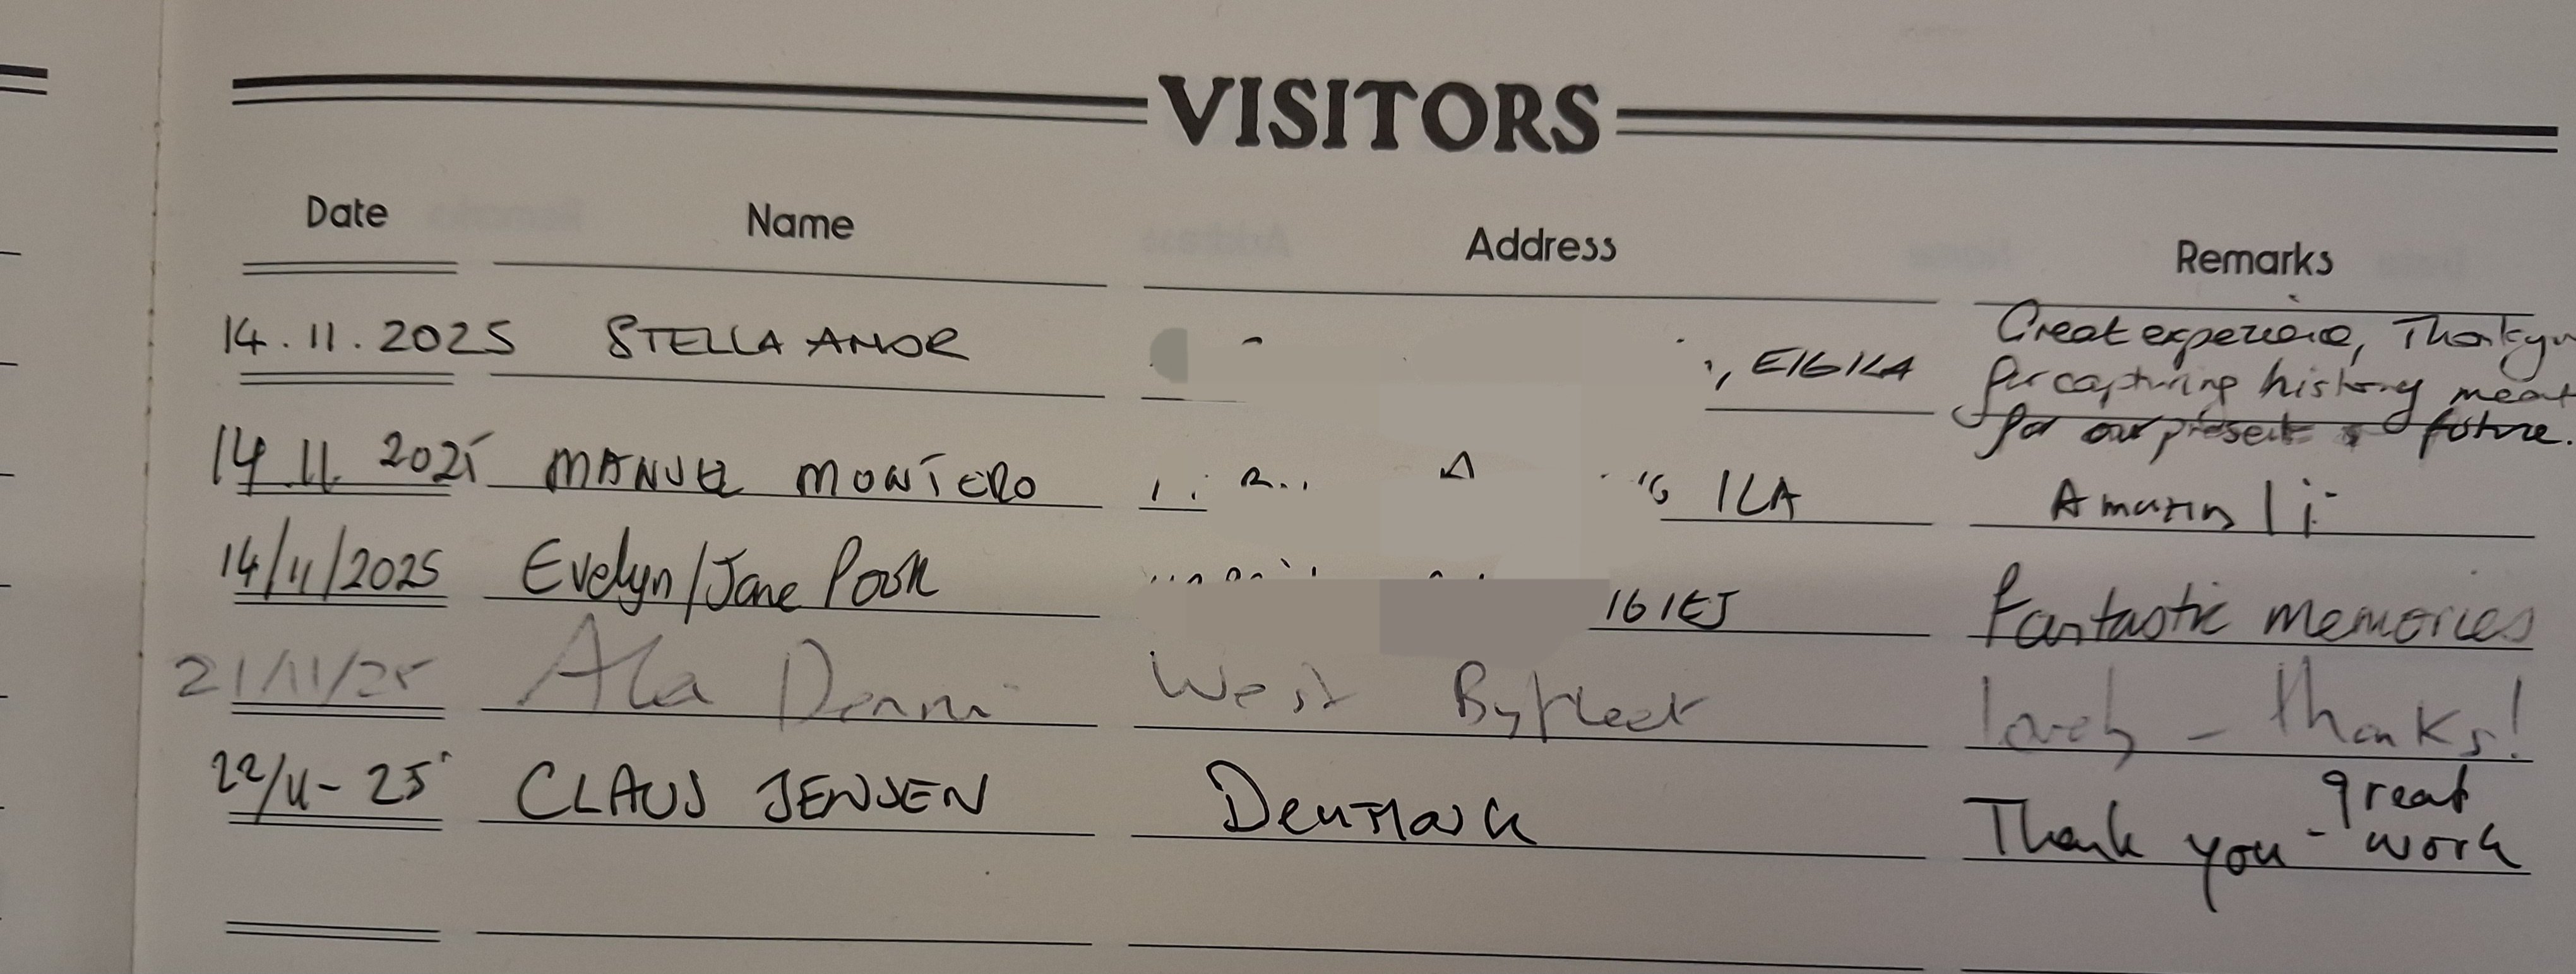 VISITORS
Date Name Address Remarks
14.11.2025 STELLA AMOR , E16 1LA Great experience, Thankyou
for capturing history meant
for our present & future.
14 11 2025 MANUEL MONTERO 16 1LA
14/11/2025 Evelyn/Jane Pook 16 1EJ Fantastic memories
21/11/25 West Byfleet lovely - thanks!
22/11-25 CLAUS JENSEN Denmark Thank you - great work